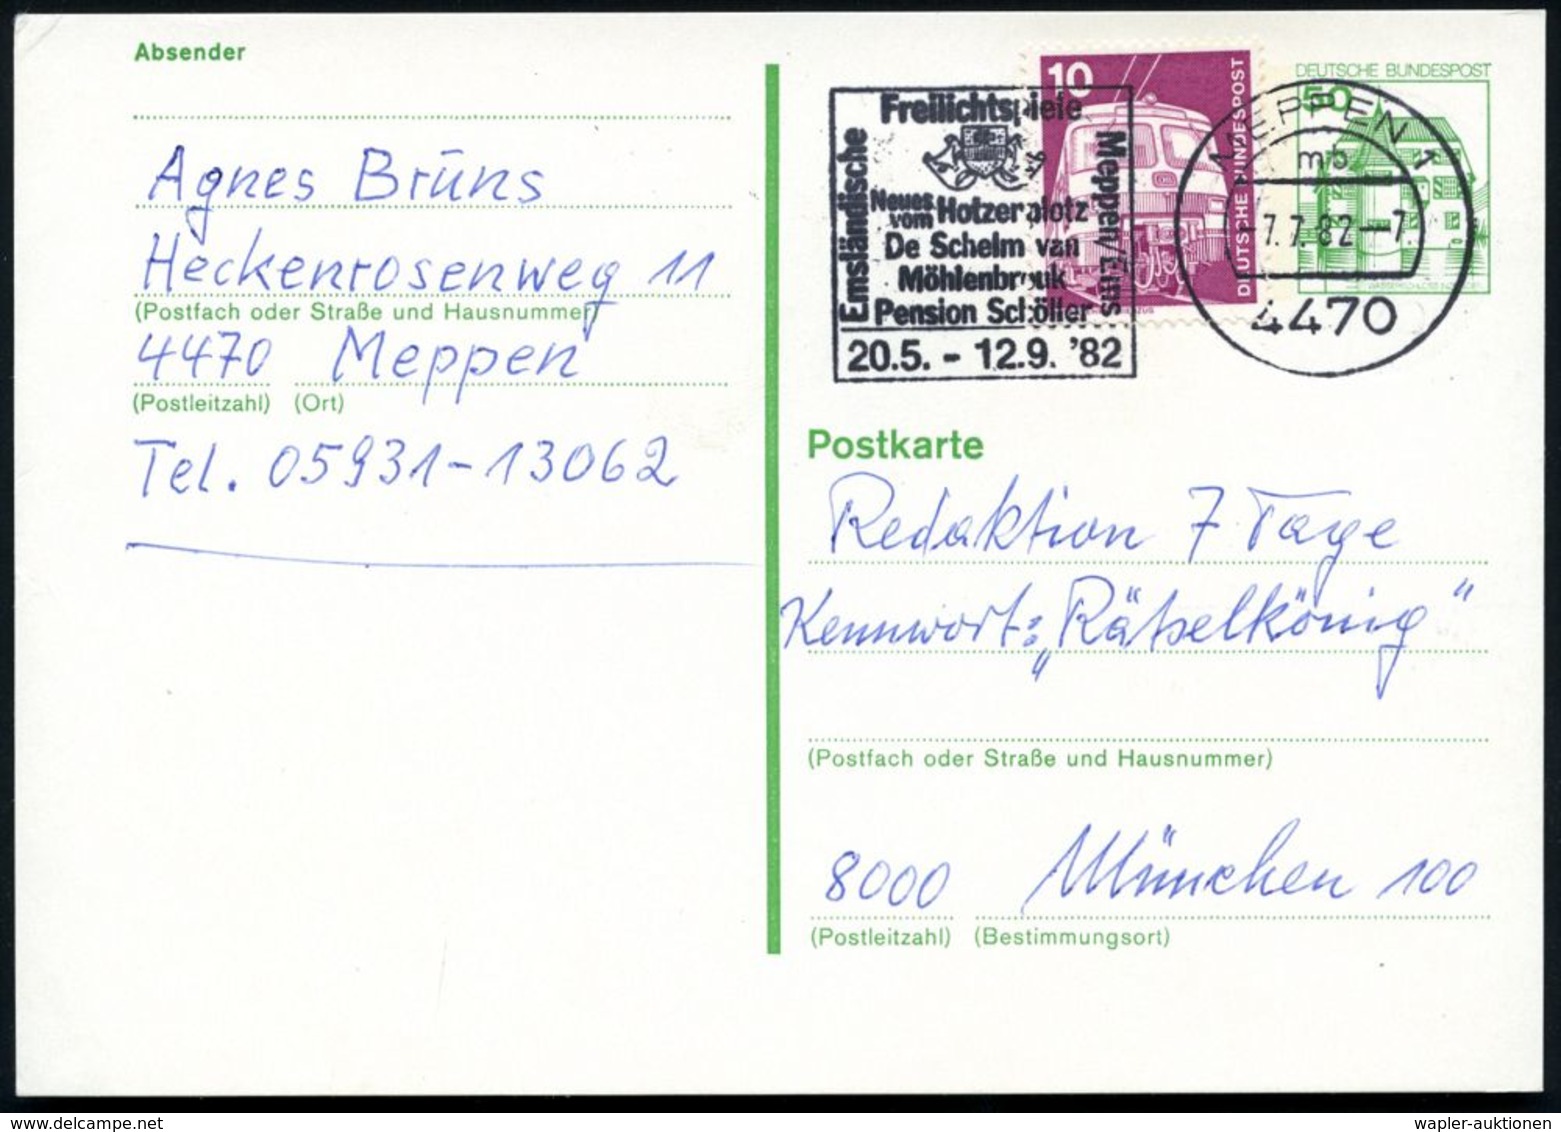 Absender
Agnes Brüns
Heckenrosenweg 11
(Postfach oder Straße und Hausnummer)
4470 Meppen
(Postleitzahl) (Ort)
Tel. 05931-13062
10
DEUTSCHE BUNDESPOST
DEUTSCHE BUNDESPOST
50
Freilichtspiele
Emsländische
Meppen/Ems
Neues vom Hotzenplotz
De Schelm van
Möhlenbrouk
Pension Schöller
20.5. - 12.9. '82
MEPPEN 1
mb
-7.7.82-7
4470
Postkarte
Redaktion 7 Tage
Kennwort: „Rätselkönig"
(Postfach oder Straße und Hausnummer)
8000 München 100
(Postleitzahl) (Bestimmungsort)
wapler-auktionen